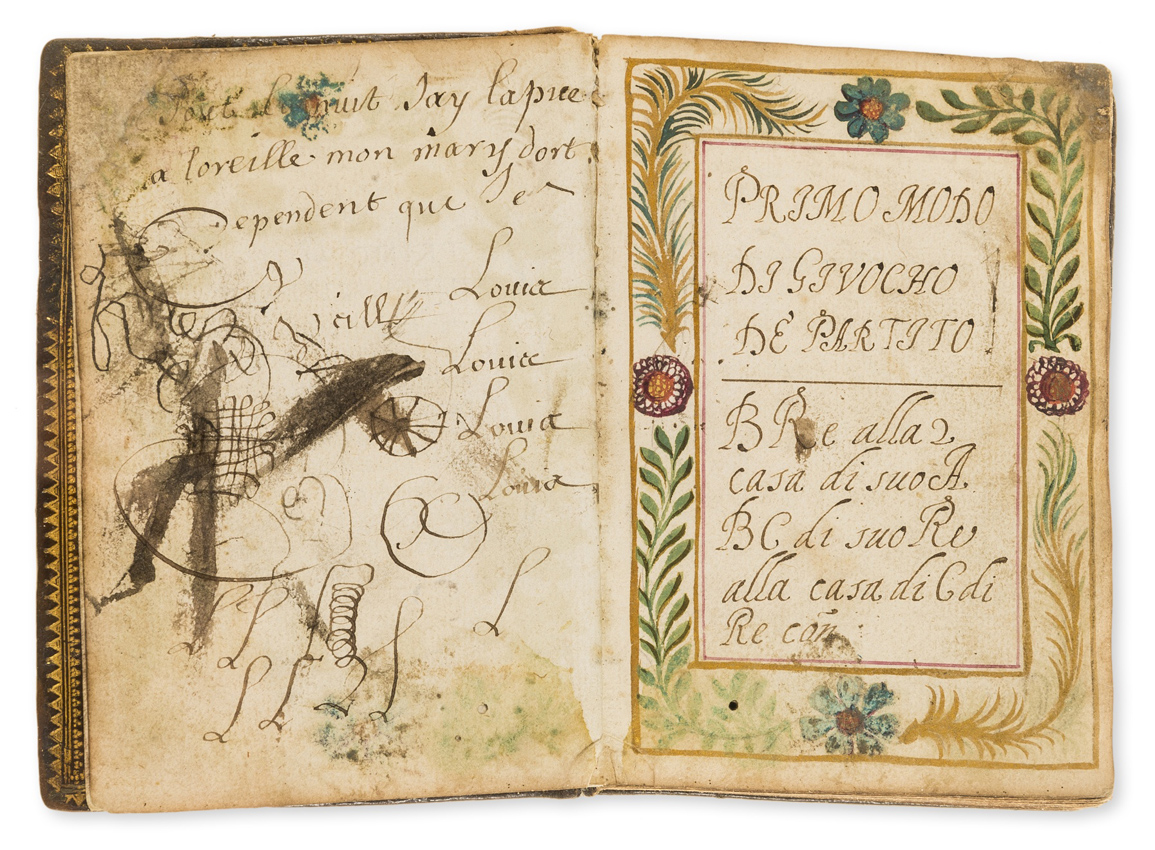 Tout la nuit Jay lapuce
a loreille mon mary dort.
Dependent que Je
Louia
Louia
Louia
Louia
L
PRIMO MODO
DI GIVOCHO
DE PARTITO
B Re alla 2
casa di suo A.
B C di suo Re
alla casa di C di
Re